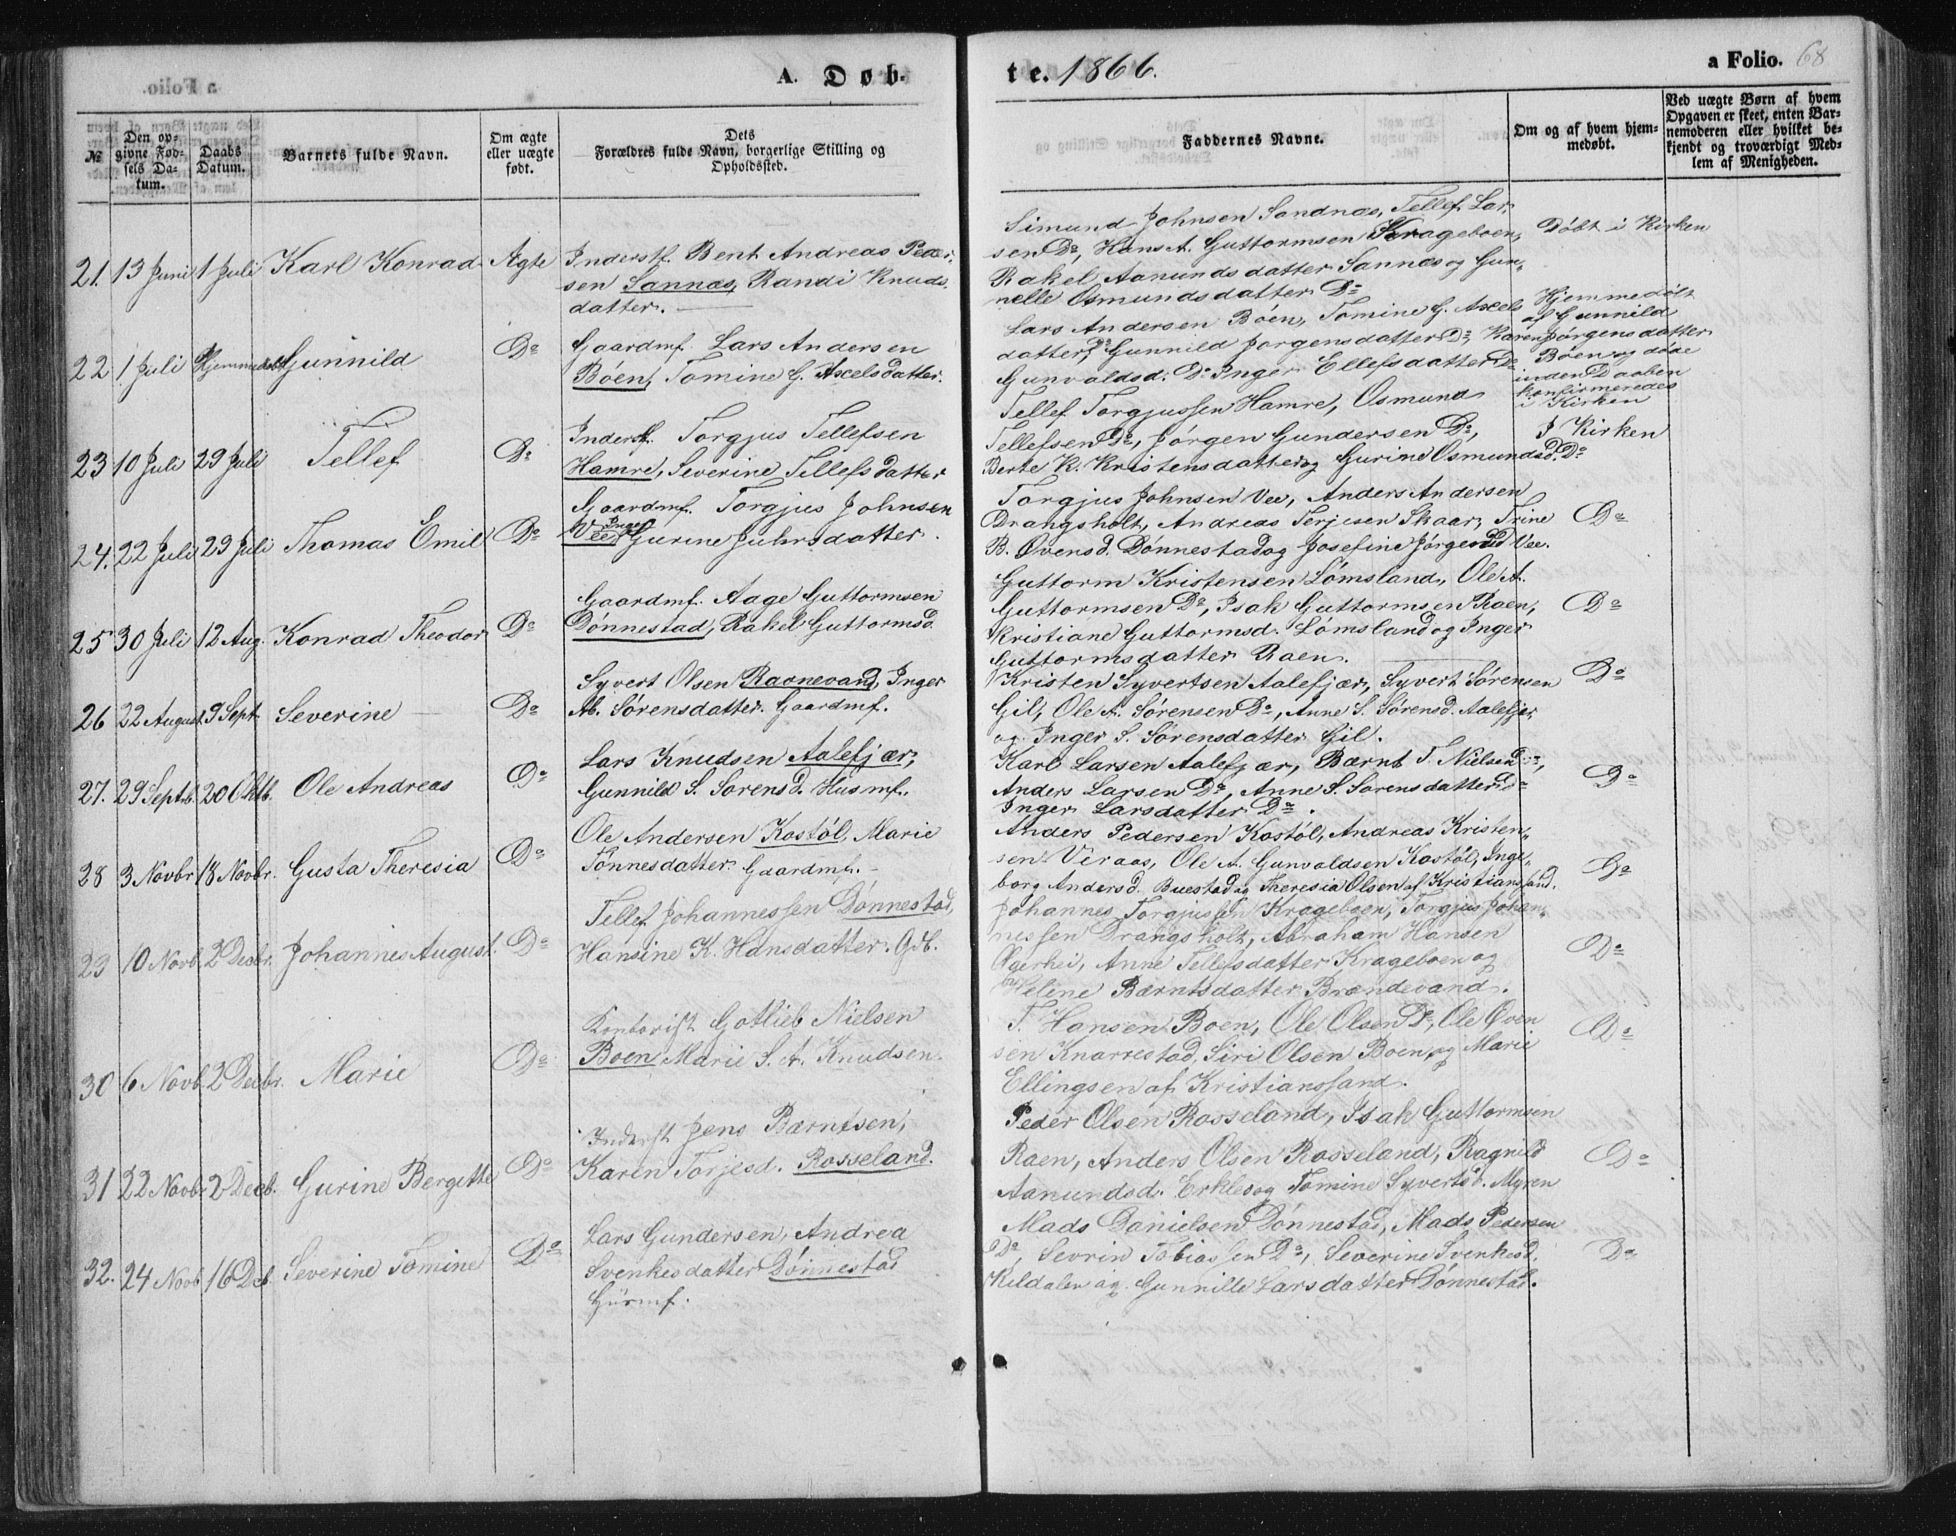 A. Døb-
te. 1866.
a Folio. 68
№
Den op-
givne Fød-
sels Da-
tum.
Daabs
Datum.
Barnets fulde Navn.
Om ægte
eller uægte
født.
Dets
Forældres fulde Navn, borgerlige Stilling og
Opholdssted.
Faddernes Navne.
Om og af hvem hjem-
medøbt.
Ved uægte Børn af hvem
Opgaven er skeet, enten Bar-
nemoderen eller hvilket be-
kjendt og troværdigt Med-
lem af Menigheden.
21. 13 Juni 1 Juli Karl Konrad Ægte
Inderstf. Bent Andreas Peder-
sen Sannæs, Randi Knuds-
datter.
Simund Johnsen Sandnæs, Tellef Lar-
sen Do, Hans A. Guttormsen Krageboen,
Rakel Aanundsdatter Sannæs og Gun-
nelle Osmundsdatter Do
Döbt i Kirken
22 1 Juli Hjemmedöbt Gunnild Do
Gaardmf. Lars Andersen
Böen, Tomine G. Axelsdatter.
Lars Andersen Böen, Tomine G. Axels
datter Do, Gunnild Jorgensdatter Do, Karen
Gunvaldsd. Do Inger Ellefsdatter Do
Hjemmedöbt
af Gunnild
Jørgensdatter
Böen og döde
inden Daaben
konfirmeredes
i Kirken
23 10 Juli 29 Juli Tellef Do
Inderstf. Torgjus Tellefsen
Hamre, Severine Tellefsdatter
Tellef Torgjussen Hamre, Osmund
Tellefsen Do, Jórgen Gundersen Do,
Berte K. Kristensdatter og Gurine Osmundsd. Do
I Kirken
24. 22 Juli 29 Juli Thomas Emil Do
Gaardmf. Torgjus Johnsen
Vee, Inger Gurine Juhrsdatter.
Torgjus Johnsen Vee, Anders Andersen
Drangsholt, Andreas Terjesen Skaar, Trine
B. Ovensd. Dönnestad og Josefine Jörgensd Vee.
Do
25 30 Juli 12 Aug. Konrad Theodor Do
Gaardmf. Aage Guttormsen
Dönnestad, Rakel Guttormsd.
Guttorm Kristensen Lömsland, Ole A.
Guttormsen Do, Isak Guttormsen Raen,
Kristiane Guttormsd. Lömsland og Inger
Guttormsdatter Raen.
Do
26 22 August 9 Sept. Severine Do
Syvert Olsen Ravnevand, Inger
Ab. Sörensdatter. Gaardmf.
Kristen Syvertsen Aalefjær, Syvert Sörensen
Gil, Ole A. Sörensen Do, Anne S. Sörensd. Aalefjær
og Inger S. Sörensdatter Gil.
Do
27. 29 Septb. 20 Oktb. Ole Andreas Do
Lars Knudsen Aalefjær,
Gunnild S. Sorensd. Husmf.
Karl Larsen Aalefjær, Bærnt T. Nielsen Do,
Anders Larsen Do, Anne S. Sorensdatter Do
Inger Larsdatter Do.
Do
28 3 Novbr 18 Novbr. Gusta Theresia Do
Ole Andersen Kostöl, Marie
Tönnesdatter. Gaardmf.
Anders Pedersen Kostöl, Andreas Kristen-
sen Veraas, Ole A. Gunvaldsen Kostöl, Inge-
borg Andersd. Buestad og Theresia Olsen af Kristianssand.
Do
29 10 Novb. 2 Decbr. Johannes August. Do
Tellef Johannessen Dönnestad,
Hansine K. Hansdatter. Gdb.
Johannes Torgjussen Krageboen, Torgjus Johan-
nessen Drangsholt, Abraham Hansen
Ögerhei, Anne Tellefsdatter Krageboen og
Heline Bærntsdatter Brændevand.
Do
30 6 Novb. 2 Decbr. Marie Do
Kontorist Gotlieb Nielsen
Boen Marie S. A. Knudsen.
T. Hansen Boen, Ole Olsen Do, Ole Oven
sen Knarrestad, Siri Olsen Boen og Marie
Ellingsen af Kristianssand.
Do
31 22 Novbr 2 Decb. Gurine Bergitte Do
Inderst Jens Bærntsen,
Karen Torjesd. Rosseland.
Peder Olsen Rosseland, Isak Guttormsen
Raen, Anders Olsen Rosseland, Ragnild
Aanundsd. Erklev og Tomine Syvertsd. Myren
Do
32. 24 Novb 16 Dcb. Severine Tomine Do
Lars Gundersen, Andrea
Svenkesdatter Dönnestad
Mads Danielsen Dönnestad, Mads Pedersen
Do, Sevrin Tobiassen Do, Severine Svenkesd.
Kildalen og Gunnille Larsdatter Dönnestad.
Do